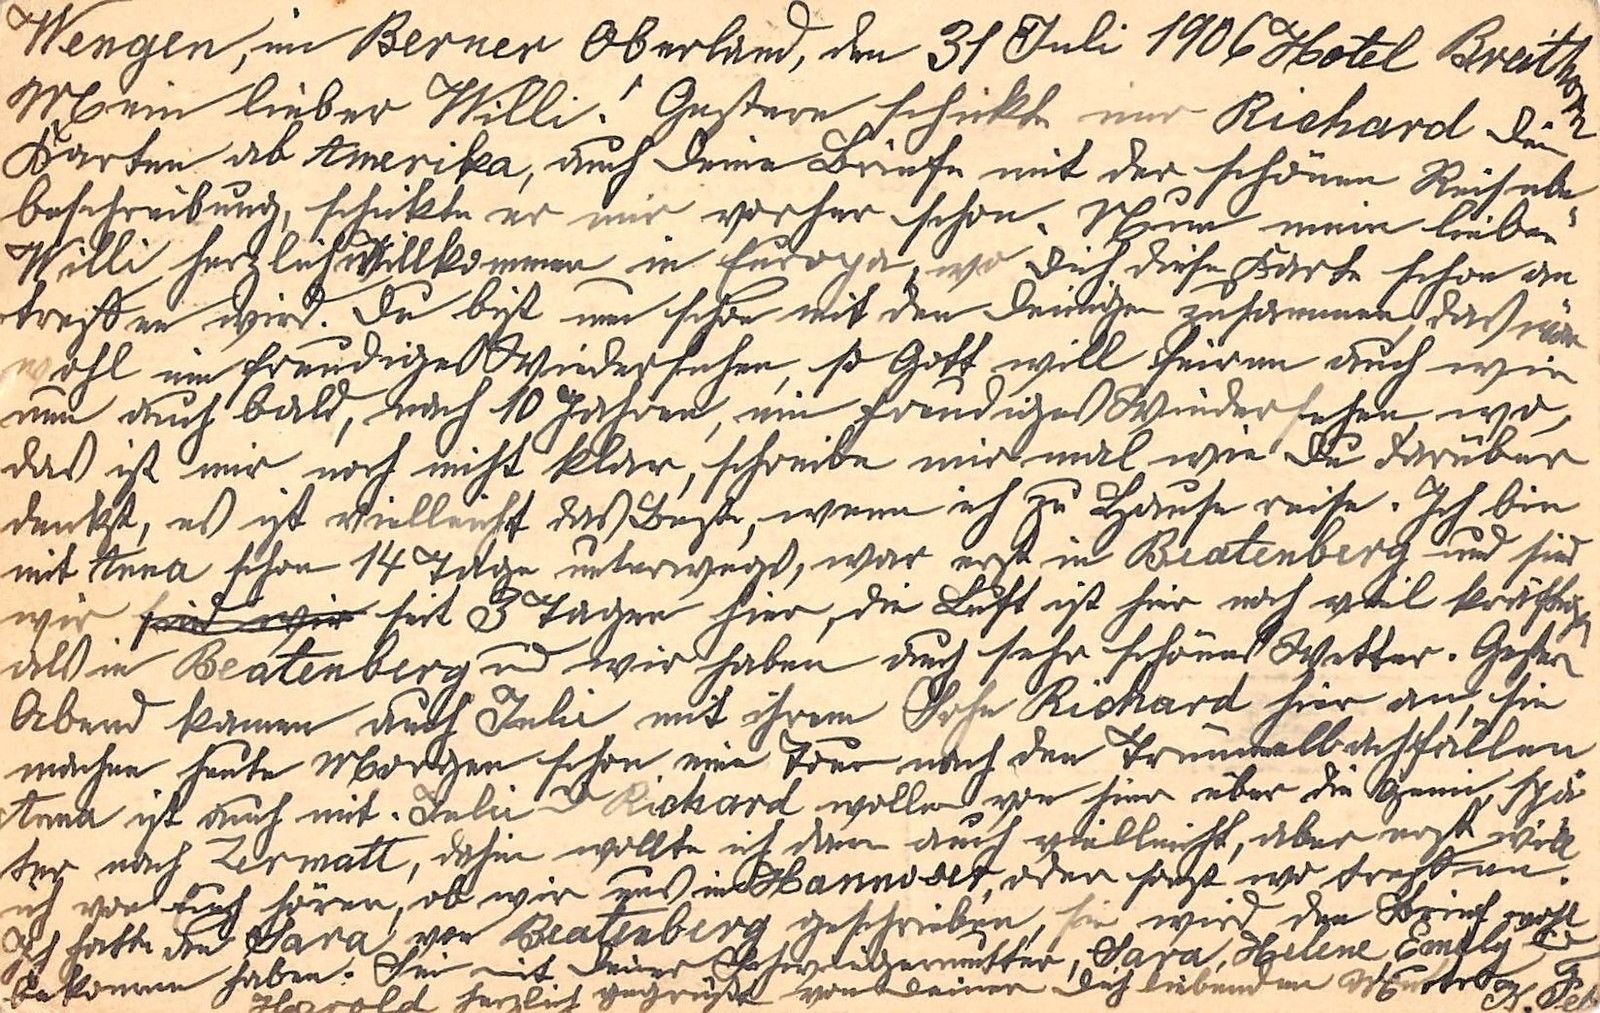 Wengen, im Berner Oberland, den 31 Juli 1906 Hotel Breithorn
Mein lieber Willi! Gestern schickte mir Richard Dein
Karten ab Amerika, auch Deine Briefe mit der schönen Reisebe-
beschreibung, schickte er mir vorher schon. Nun mein lieber
Willi herzlich Willkommen in Europa, wo Dich diese Karte schon an
treffen wird. Du bist nun schon mit den Deinigen zusammen, das wär
wohl ein freudiges Wiedersehen, so Gott will feiren auch wir
nun auch bald, nach 10 Jahren, ein freudiges Wiedersehen, wo,
das ist mir noch nicht klar, schreibe mir mal wie Du darüber
denkst, es ist vielleicht das Beste, wenn ich zu Hause reise. Ich bin
mit Anna schon 14 Tage unterwegs, war erst in Beatenberg und sind
wir sind wir seit 3 Tagen hier, die Luft ist hier noch viel kräftiger
als in Beatenberg und wir haben auch sehr schönes Wetter. Gestern
Abend kamen auch Julie mit ihrem Sohn Richard hier an, sie
machen heute Morgen schon eine Tour nach den Trümmelbachfällen
Anna ist auch mit. Julie u Richard wollen von hier über die Gemi, spä
ter nach Zermatt, dahin wollte ich dann auch vielleicht, aber erst will
ich von Euch hören, ob wir uns in Hannover, oder sonst wo treffen.
Ich hatte an Sara, von Beatenberg geschrieben, sie wird den Brief wohl
bekommen haben. Sei mit Deiner Schwiegermutter, Sara, Helene, Emily
Harold herzlich gegrüßt von Deiner Dich liebenden Mutter